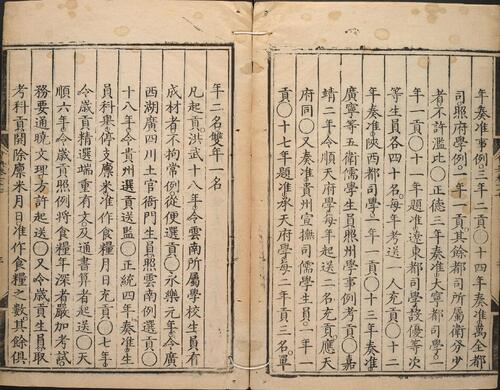 年奏准事例三年二貢〇十四年奏准萬全都
司照府學例一年一貢其餘都司所屬衛分少
者不許濫比〇正德三年奏准大寧都司學一
年一貢〇十一年題准遼東都司學設優等次
等生員各四十名每年考送一人充貢〇十二
年奏准陝西都司學一年一貢〇十三年奏准
廣寧等五衛儒學生員照州學事例考貢〇嘉
靖二年令順天府學每年起送二名充貢應天
府同〇又奏准貴州宣撫司儒學生員一年一
貢〇十七年題准承天府學每二年貢三名單
年二名雙年一名
凡起貢洪武十八年令雲南所屬學校生員有
成材者不拘常例從便選貢〇永樂元年令廣
西湖廣四川土官衙門生員照雲南例選貢〇
十八年令貴州選貢送監〇正統四年奏准生
員科舉停支廩米准作食糧月日充貢〇七年
令歲貢精選端重有文及通書算者起送〇天
順六年令歲貢照例將食糧年深者嚴加考試
務要通曉文理方許起送〇又令歲貢生員取
考科貢開除廩米月日准作食糧之數其餘俱